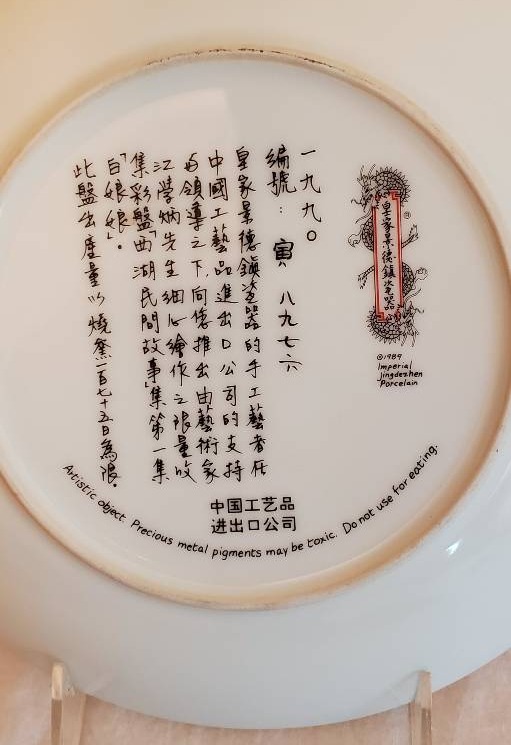 皇家景德鎮瓷器
©1989
Imperial
Jingdezhen
Porcelain
一九九〇
編號：寅 八九七六
皇家景德鎮瓷器的手工藝者在
中國工藝品進出口公司的支持
与領導之下，向您推出由藝術家
江學炳先生細心繪作之限量收
集彩盤「西湖民間故事」集第一集
「白娘娘」。
此盤出産量以燒窯一百七十五日為限。
中国工艺品
进出口公司
Artistic object. Precious metal pigments may be toxic. Do not use for eating.